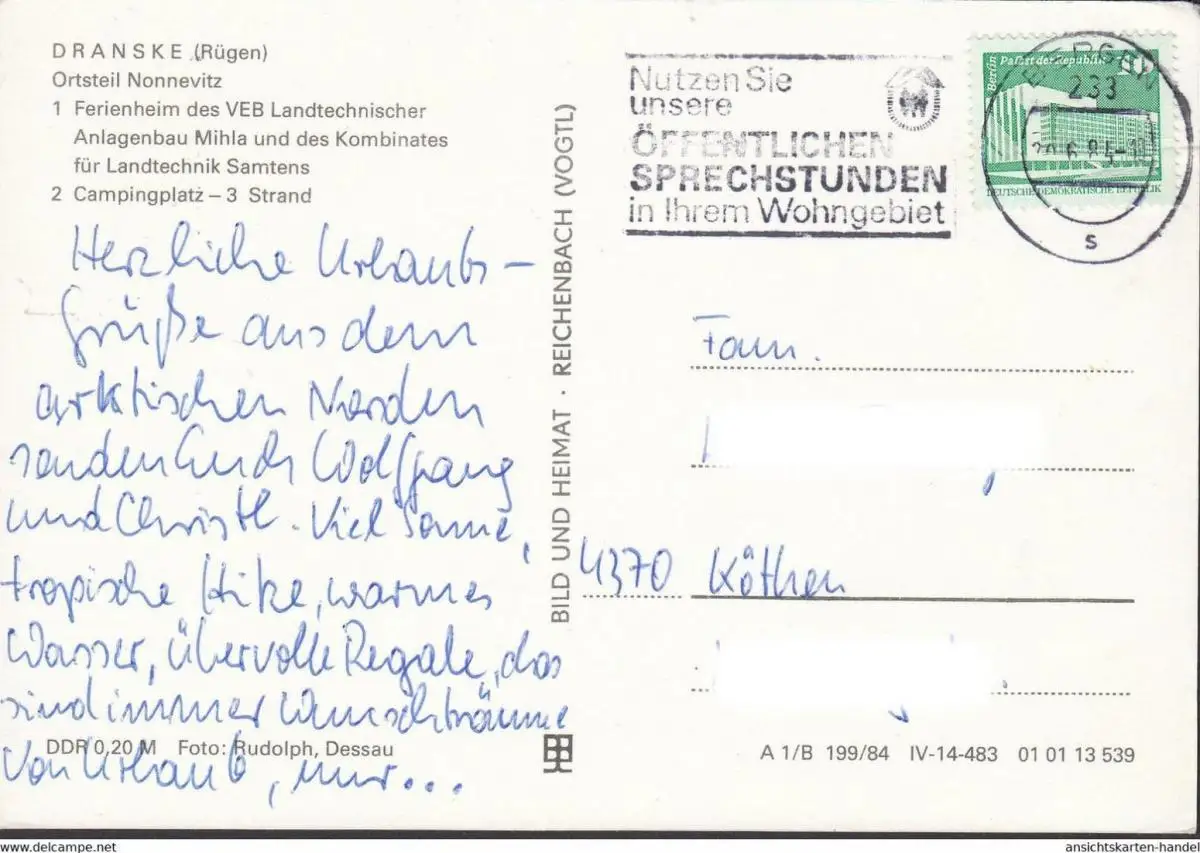 DRANSKE (Rügen)
Ortsteil Nonnevitz
1 Ferienheim des VEB Landtechnischer
Anlagenbau Mihla und des Kombinates
für Landtechnik Samtens
2 Campingplatz – 3 Strand
Herzliche Urlaubs-
grüße aus dem
arktischen Norden
senden Euch Wolfgang
und Christl. Viel Sonne,
tropische Hitze, warmes
Wasser, übervolle Regale, das
sind immer Wunschträume
von Urlaub, nur...
DDR 0,20 M Foto: Rudolph, Dessau
BILD UND HEIMAT · REICHENBACH (VOGTL)
Nutzen Sie
unsere
ÖFFENTLICHEN
SPRECHSTUNDEN
in Ihrem Wohngebiet
Berlin Palast der Republik
10
DEUTSCHE DEMOKRATISCHE REPUBLIK
BERGEN
233
s
Fam.
4370 Köthen
A 1/B 199/84 IV-14-483 01 01 13 539
www.delcampe.net
ansichtskarten-handel